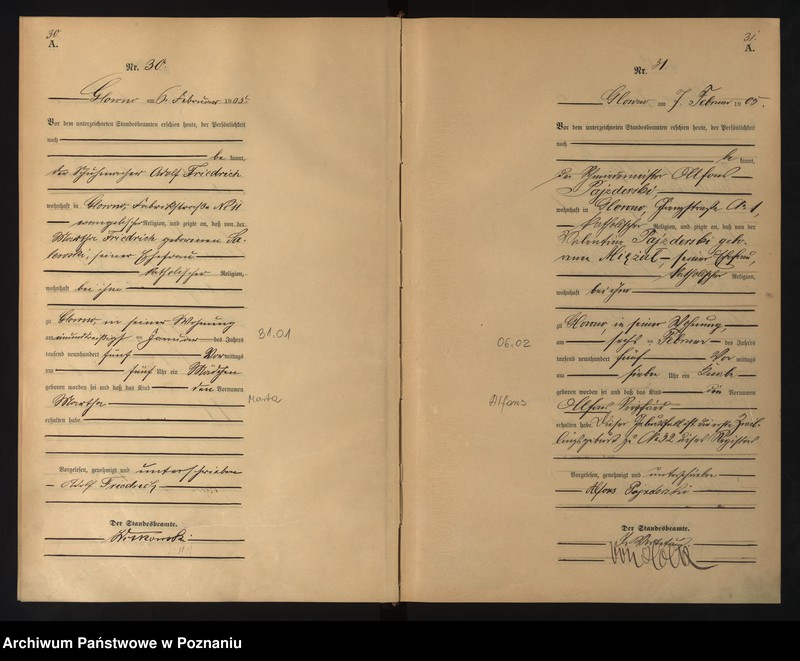 30.
A.
Nr. 30.
Glowno am 6. Februar 1905.
Vor dem unterzeichneten Standesbeamten erschien heute, der Persönlichkeit
nach
be kannt,
der Schuhmacher Adolf Friedrich
wohnhaft in Glowno, Fabrikstraße No 11
evangelischer Religion, und zeigte an, daß von der
Martha Friedrich geborenen
seiner Ehefrau
katholischer Religion,
wohnhaft bei ihm
zu Glowno, in seiner Wohnung
am einunddreißigsten Januar des Jahres
tausend neunhundert fünf Vor mittags
um fünf Uhr ein Mädchen
geboren worden sei und daß das Kind den Vornamen
Martha
erhalten habe.
Vorgelesen, genehmigt und unterschrieben
Adolf Friedrich
Der Standesbeamte.
31.01
Marta
31.
A.
Nr. 31.
Glowno am 7. Februar 1905.
Vor dem unterzeichneten Standesbeamten erschien heute, der Persönlichkeit
nach
be kannt,
der Alfons
Pajzderski,
wohnhaft in Glowno, No 1,
katholischer Religion, und zeigte an, daß von der
Valentina Pajzderski gebo-
renen seiner Ehefrau,
katholischer Religion,
wohnhaft bei ihm
zu Glowno, in seiner Wohnung,
am sechs ten Februar des Jahres
tausend neunhundert fünf Vor mittags
um sieben Uhr ein Knabe
geboren worden sei und daß das Kind die Vornamen
Alfons
erhalten habe. Dieser Geburtsfall ist die erste Zwil-
lingsgeburt zu No 32 dieses Registers
Vorgelesen, genehmigt und unterschrieben
Alfons Pajzderski
Der Standesbeamte.
In Vertretung
06.02
Alfons
Archiwum Państwowe w Poznaniu